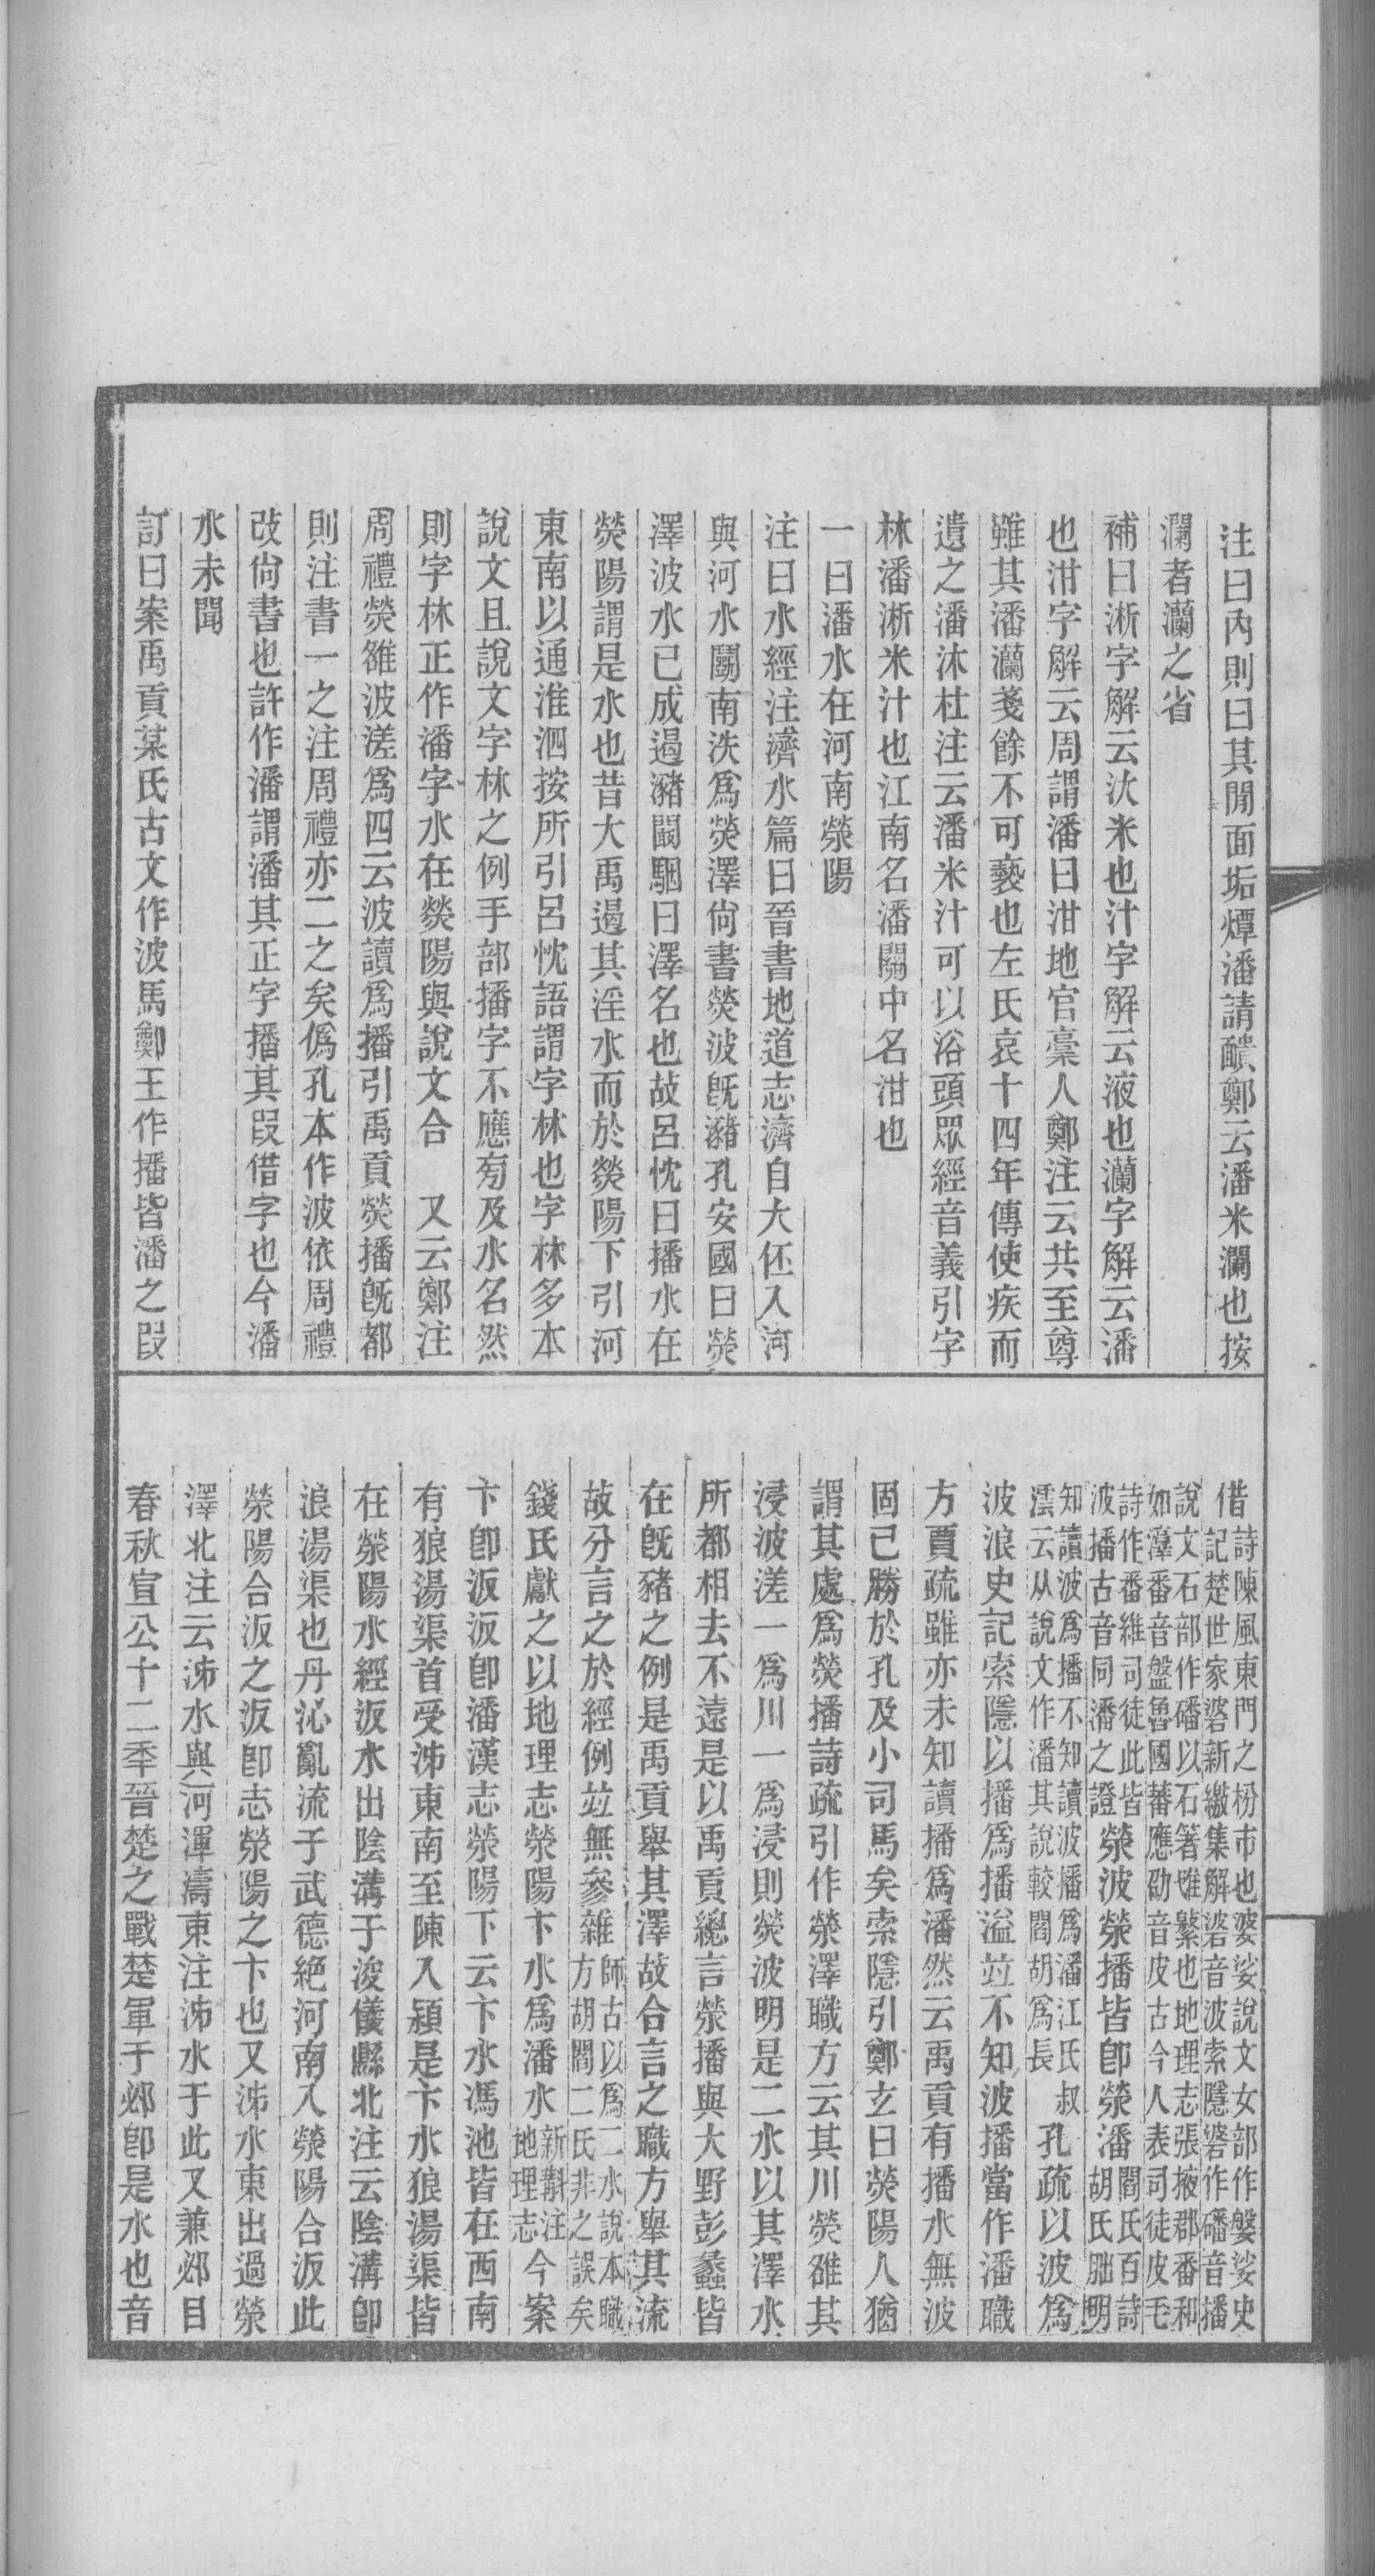 注曰內則曰其閒面垢燂潘請靧鄭云潘米瀾也按
瀾者灡之省
補曰淅字解云汏米也汁字解云液也灡字解云潘
也泔字解云周謂潘曰泔地官稾人鄭注云共至尊
雖其潘灡戔餘不可褻也左氏哀十四年傳使疾而
遺之潘沐杜注云潘米汁可以浴頭眾經音義引字
林潘淅米汁也江南名潘關中名泔也
一曰潘水在河南滎陽
注曰水經注濟水篇曰晉書地道志濟自大伾入河
與河水鬭南泆爲熒澤尙書熒波旣瀦孔安國曰熒
澤波水已成遏瀦闞駰曰澤名也故呂忱曰播水在
熒陽謂是水也昔大禹遏其淫水而於熒陽下引河
東南以通淮泗按所引呂忱語謂字林也字林多本
說文且說文字林之例手部播字不應㫄及水名然
則字林正作潘字水在熒陽與說文合　又云鄭注
周禮熒雒波溠爲四云波讀爲播引禹貢熒播旣都
則注書一之注周禮亦二之矣僞孔本作波依周禮
改尙書也許作潘謂潘其正字播其叚借字也今潘
水未聞
訂曰案禹貢某氏古文作波馬鄭王作播皆潘之叚
借詩陳風東門之枌市也婆娑說文女部作媻娑史
記楚世家碆新繳集解碆音波索隱碆作磻音播
說文石部作磻以石箸隿繁也地理志張掖郡番和
如潭番音盤魯國蕃應劭音皮古今人表司徒皮毛
詩作番維司徒此皆
波播古音同潘之證滎波滎播皆卽滎潘閻氏百詩
胡氏朏明
知讀波爲播不知讀波播爲潘江氏叔
澐云从說文作潘其說較閻胡爲長孔疏以波爲
波浪史記索隱以播爲播溢竝不知波播當作潘職
方賈疏雖亦未知讀播爲潘然云禹貢有播水無波
固已勝於孔及小司馬矣索隱引鄭玄曰熒陽人猶
謂其處爲熒播詩疏引作滎澤職方云其川熒雒其
浸波溠一爲川一爲浸則熒波明是二水以其澤水
所都相去不遠是以禹貢總言滎播與大野彭蠡皆
在旣豬之例是禹貢舉其澤故合言之職方舉其流
故分言之於經例竝無參雜師古以爲二水說本職
方胡閻二氏非之誤矣
錢氏獻之以地理志滎陽卞水爲潘水新斠注
地理志今案
卞卽汳汳卽潘漢志滎陽下云卞水馮池皆在西南
有狼湯渠首受泲東南至陳入潁是卞水狼湯渠皆
在滎陽水經汳水出陰溝于浚儀縣北注云陰溝卽
浪湯渠也丹沁亂流于武德絕河南入滎陽合汳此
滎陽合汳之汳卽志滎陽之卞也又泲水東出過滎
澤北注云泲水與河渾濤東注泲水于此又兼邲目
春秋宣公十二秊晉楚之戰楚軍于邲卽是水也音